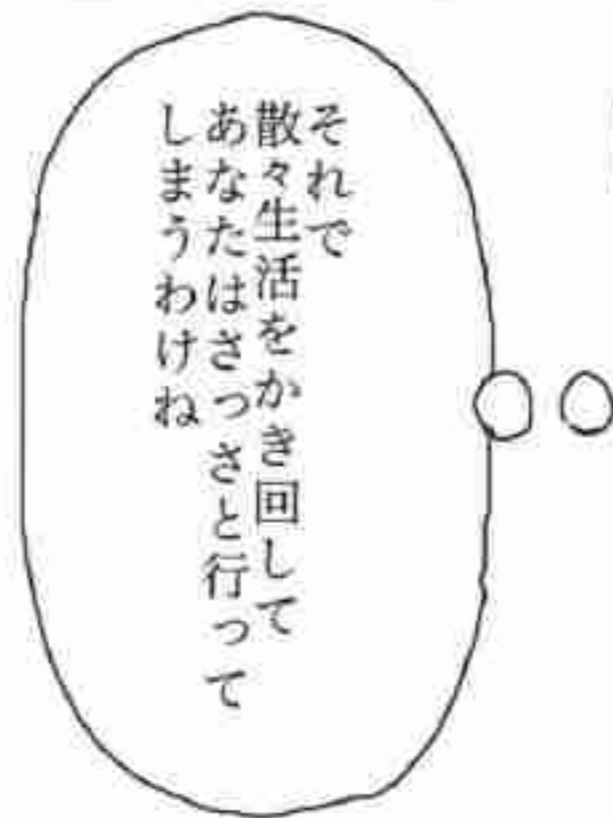 それで
散々生活をかき回して
あなたはさっさと行って
しまうわけね